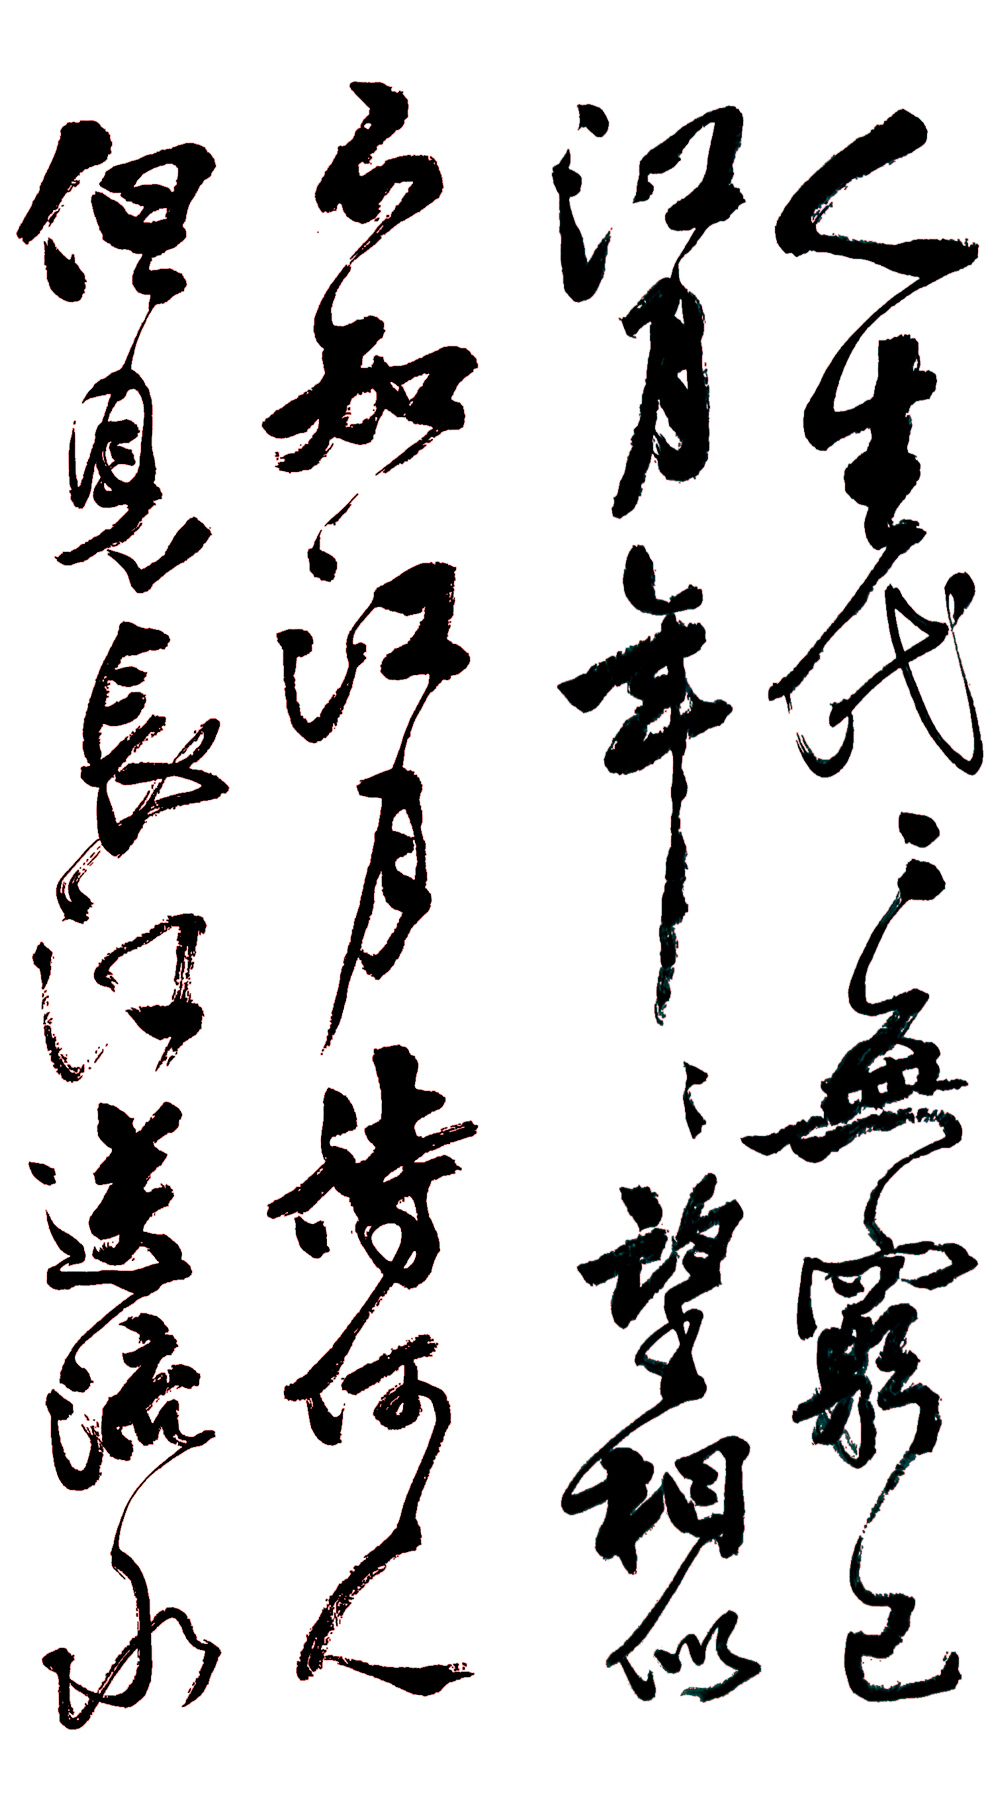 人生代々無窮已
江月年々望相似
不知江月待何人
但見長江送流水